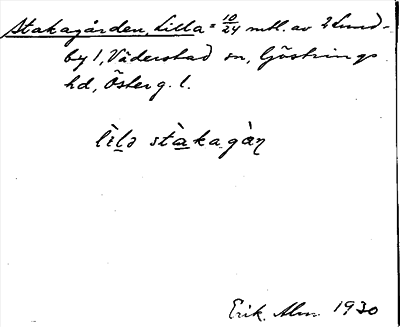 Stakagården, Lilla = 10/24 mtl. av 2 Lund-
by 1, Väderstad sn, Göstrings
hd, Österg. l.
lìlə stàkagàɳ
Erik Alm. 1930